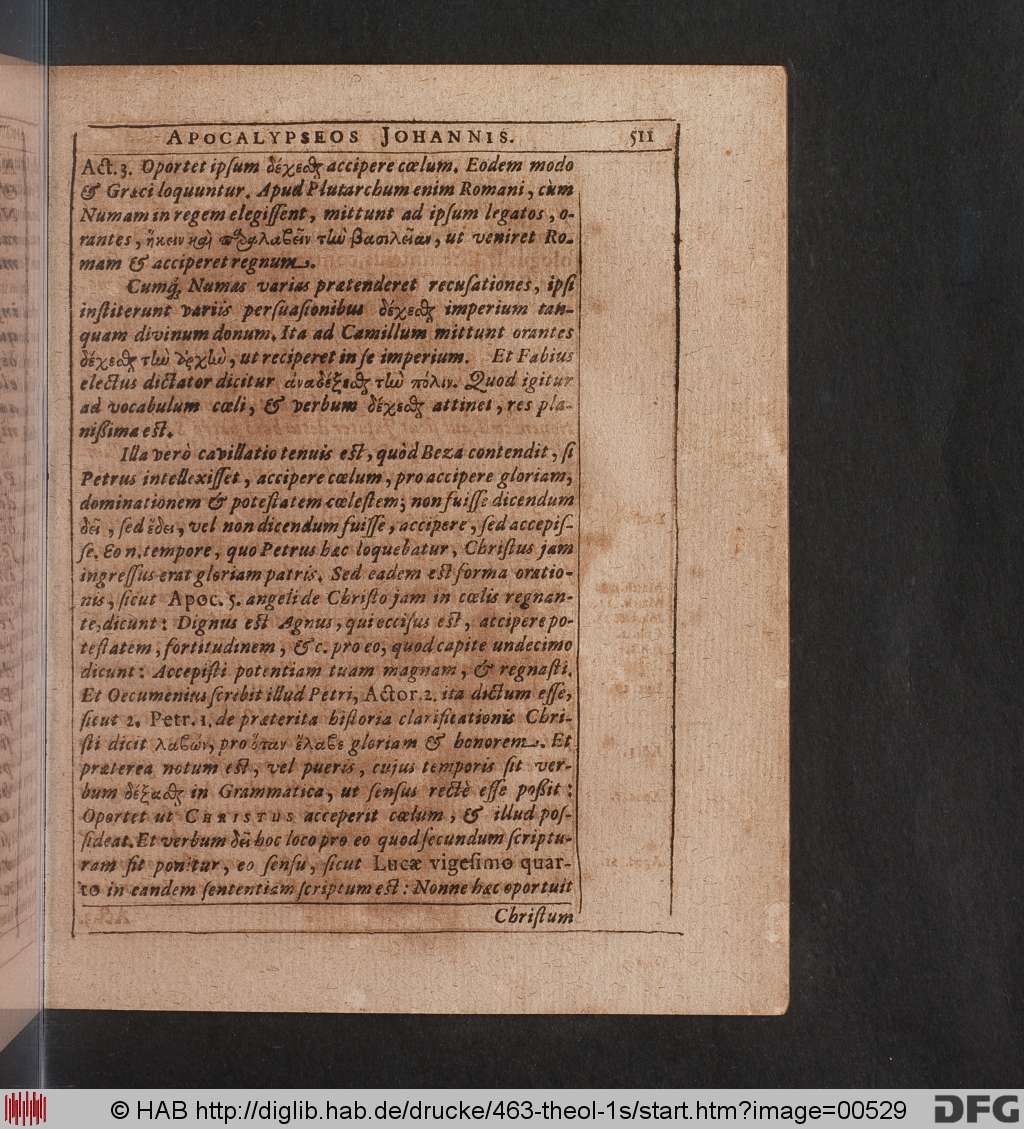 APOCALYPSEOS JOHANNIS. 511
Act. 3. Oportet ipſum δέχεσθαι accipere cœlum. Eodem modo
& Græci loquuntur. Apud Plutarchum enim Romani, cùm
Numam in regem elegiſſent, mittunt ad ipſum legatos, o-
rantes, ἥκειν καὶ παραλαβεῖν τὼ βασιλείαν, ut veniret Ro-
mam & acciperet regnum.
Cumq́; Numas varias prætenderet recuſationes, ipſi
inſtiterunt variis perſuaſionibus δέχεσθαι imperium tan-
quam divinum donum. Ita ad Camillum mittunt orantes
δέχεσθαι τὼ ἀρχὼ, ut reciperet in ſe imperium. Et Fabius
electus dictator dicitur ἀναδέξεσθαι τὼ πόλιν. Quod igitur
ad vocabulum cœli, & verbum δέχεσθαι attinet, res pla-
niſſima eſt.
Illa verò cavillatio tenuis eſt, quòd Beza contendit, ſi
Petrus intellexiſſet, accipere cœlum, pro accipere gloriam,
dominationem & poteſtatem cœleſtem; non fuiſſe dicendum
δεῖ, ſed ἔδει, vel non dicendum fuiſſe, accipere, ſed accepiſ-
ſe. Eo n. tempore, quo Petrus hæc loquebatur, Chriſtus jam
ingreſſus erat gloriam patris. Sed eadem eſt forma oratio-
nis, ſicut Apoc. 5. angeli de Chriſto jam in cœlis regnan-
te, dicunt: Dignus eſt Agnus, qui occiſus eſt, accipere po-
teſtatem, fortitudinem, &c. pro eo, quod capite undecimo
dicunt: Accepiſti potentiam tuam magnam, & regnaſti.
Et Oecumenius ſcribit illud Petri, Actor. 2. ita dictum eſſe,
ſicut 2. Petr. 1. de præterita hiſtoria clarificationis Chri-
ſti dicit λαβών, pro ὅταν ἔλαβε gloriam & honorem. Et
præterea notum eſt, vel pueris, cujus temporis ſit ver-
bum δέξασθαι in Grammatica, ut ſenſus rectè eſſe poſſit:
Oportet ut CHRISTUS acceperit cœlum, & illud poſ-
ſideat. Et verbum δεῖ hoc loco pro eo quod ſecundum ſcriptu-
ram ſit ponitur, eo ſenſu, ſicut Lucæ vigeſimo quar-
to in eandem ſententiam ſcriptum eſt: Nonne hæc oportuit
Chriſtum
© HAB http://diglib.hab.de/drucke/463-theol-1s/start.htm?image=00529
DFG